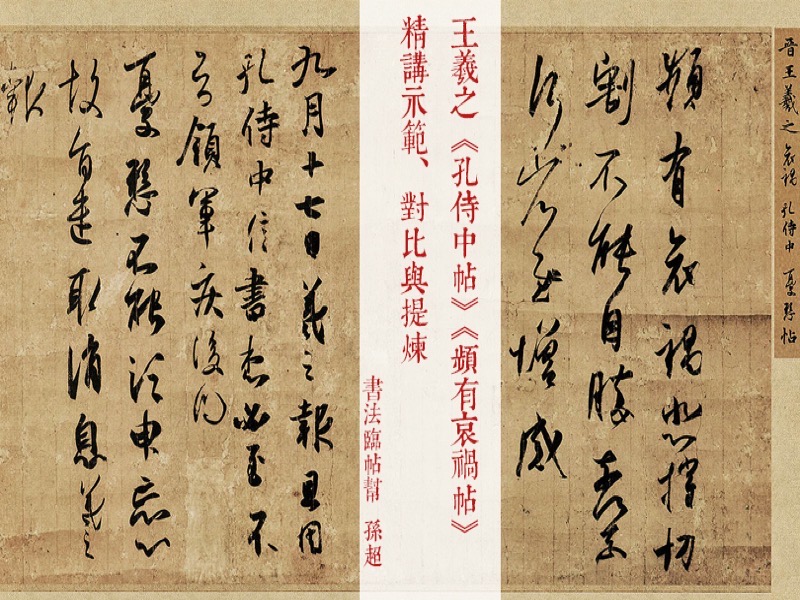 晉王羲之 哀禍 孔侍中 憂懸帖
頻有哀禍悲摧切
割不能自勝奈何奈
何省慰增感
王羲之《孔侍中帖》《頻有哀禍帖》
精講示範、對比與提煉
書法臨帖幫 孫超
九月十七日羲之報且因
孔侍中信書想必至不
知領軍疾後問
憂懸不能須臾忘心
故旨遣取消息羲之
報